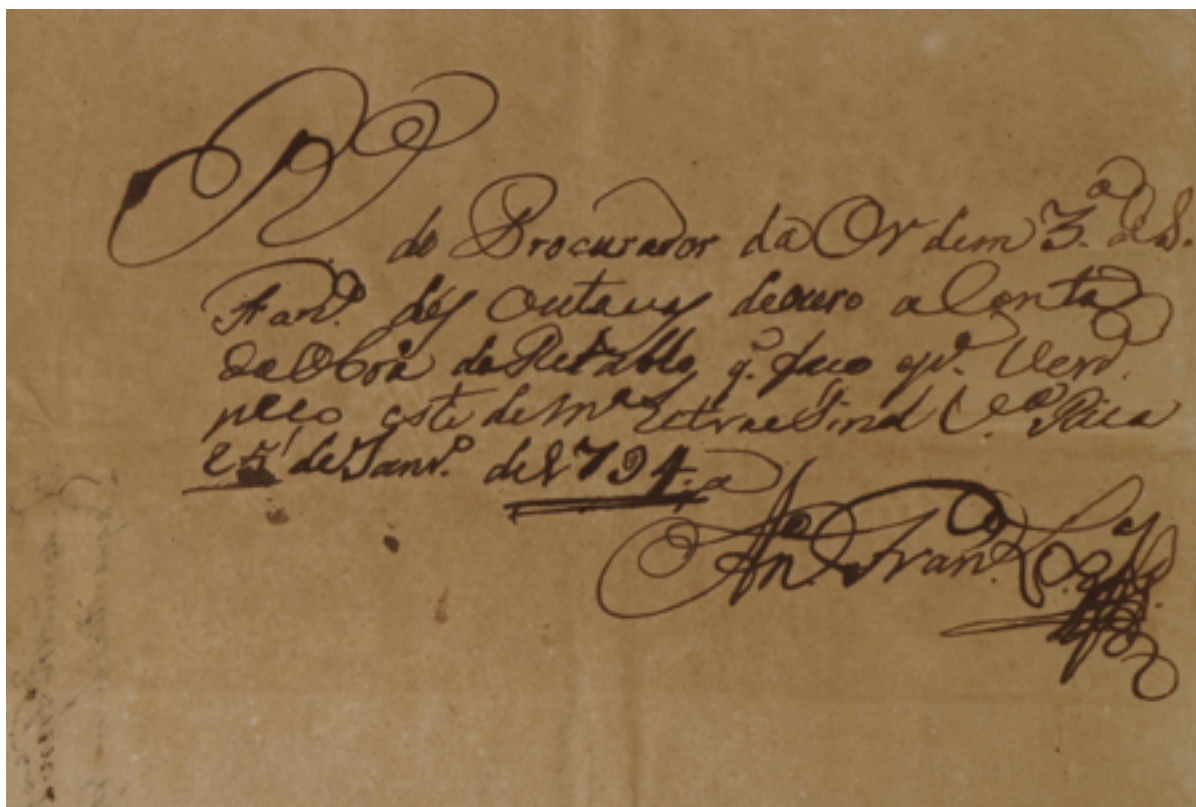 R
do Procurador da Ordem 3.ª de S.
Fran.º des outavas de ouro a Conta
da Obra do Retabllo q. faco q p.r Verd.
paco este de m.ª Letra e Sinal V.ª Rica
25 de Janr.º de 1794.a
An.º Fran.co Lx.ª